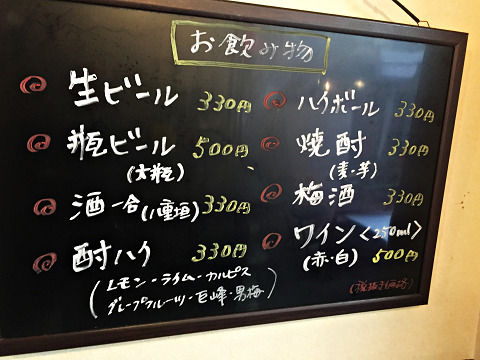 お飲み物
生ビール 330円
瓶ビール 500円
(大瓶)
酒一合(八重垣) 330円
酎ハイ 330円
(レモン・ライム・カルピス
グレープフルーツ・巨峰・男梅)
ハイボール 330円
焼酎 330円
(麦・芋)
梅酒 330円
ワイン〈250ml〉
(赤・白) 500円
(税抜き価格)